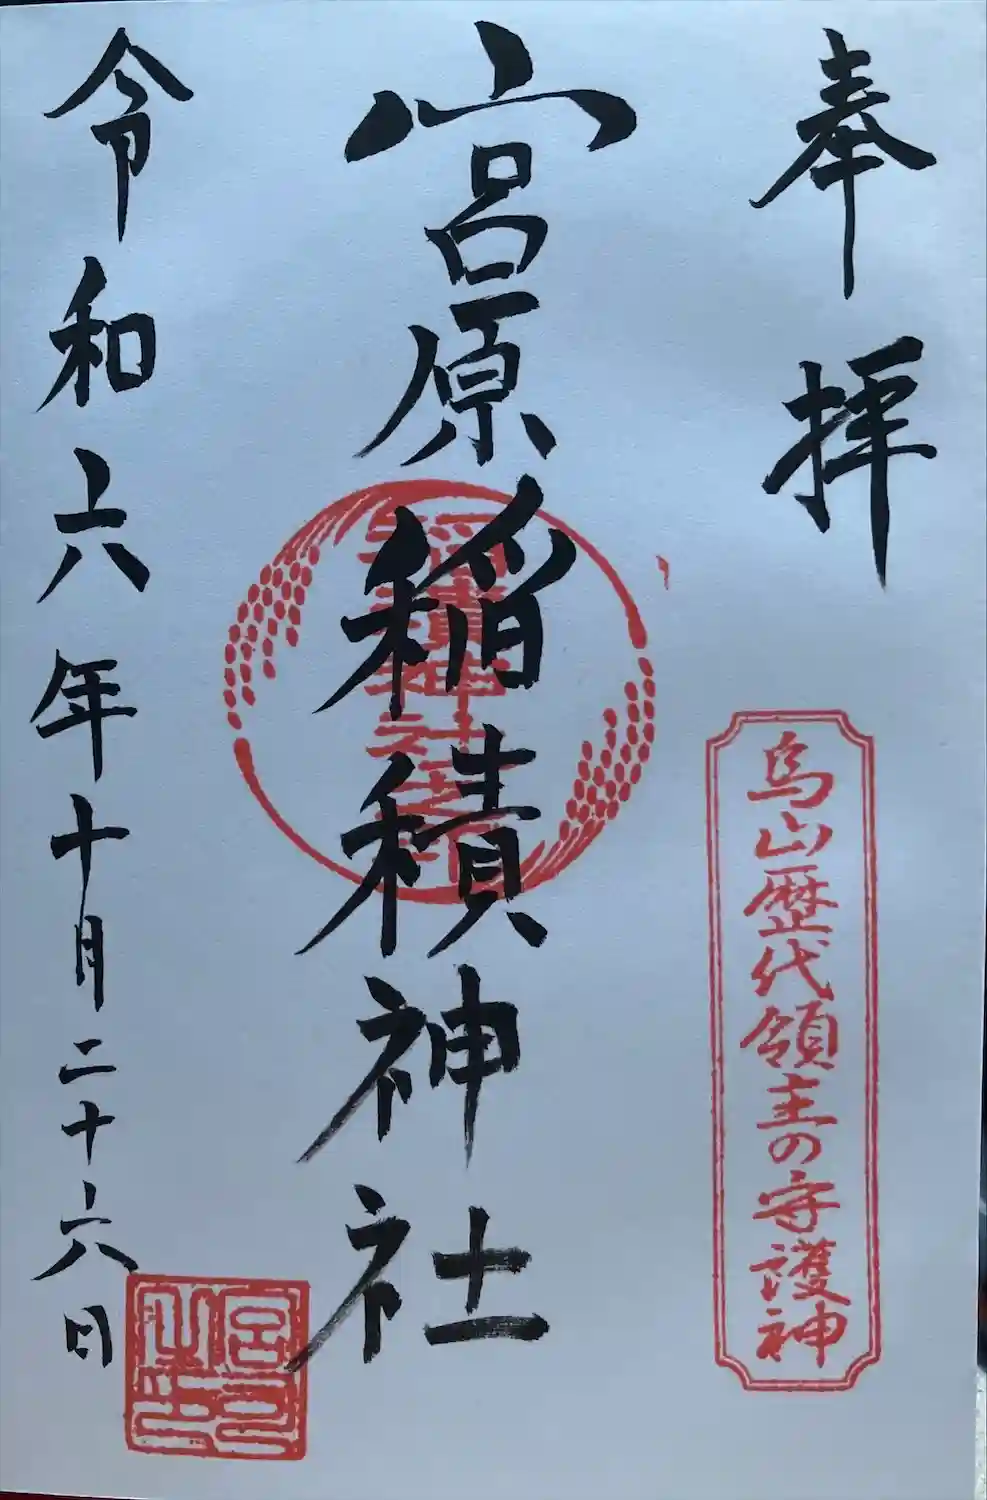 奉拝
烏山歴代領主の守護神
宮原稲積神社
令和六年十月二十六日
宮司之印